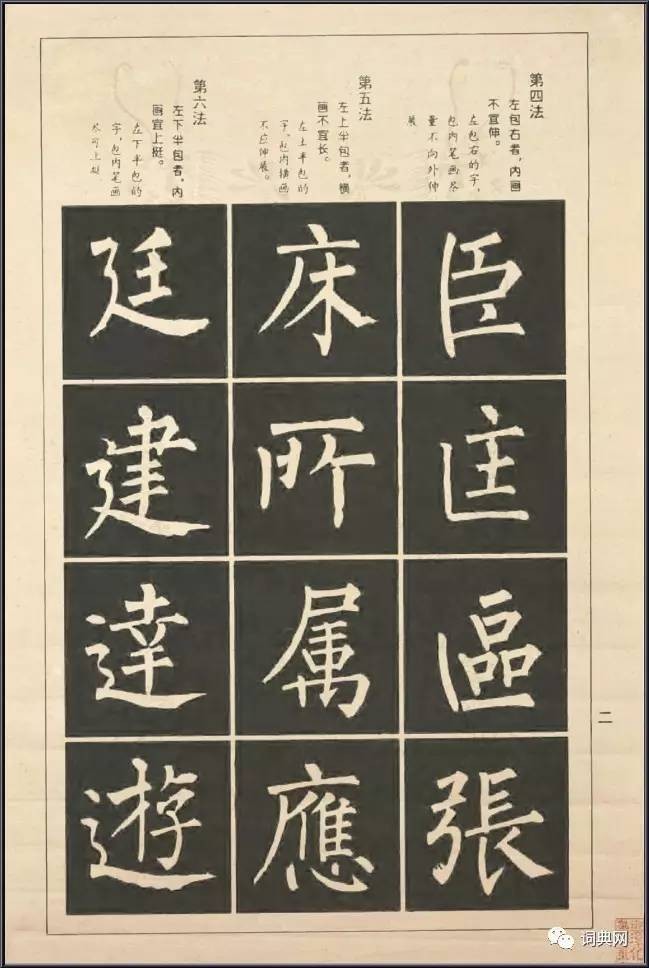 第四法
左包右者，内画
不宜伸。
左包右的字，
包内笔画尽
量不向外伸
展
臣匡區張
第五法
左上半包者，横
画不宜长。
左上半包的
字，包内横画
不应伸展。
床所属應
第六法
左下半包者，内
画宜上挺。
左下半包的
字，包内笔画
尽可上挺
廷建達遊
二
词典网